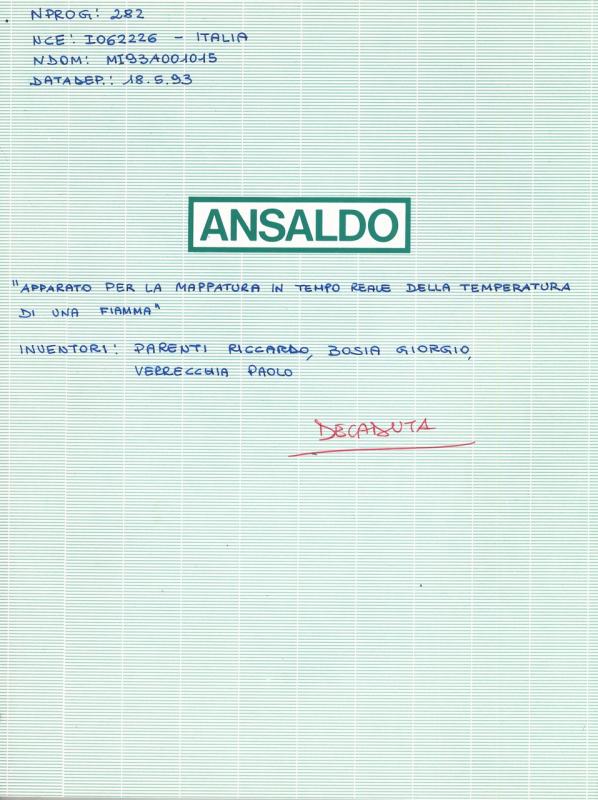 NPROG: 282
NCE: I062226 - ITALIA
NDOM: MI93A001015
DATADEP.: 18.5.93
ANSALDO
"APPARATO PER LA MAPPATURA IN TEMPO REALE DELLA TEMPERATURA
DI UNA FIAMMA"
INVENTORI: PARENTI RICCARDO, BOSIA GIORGIO,
VERRECCHIA PAOLO
DECADUTA